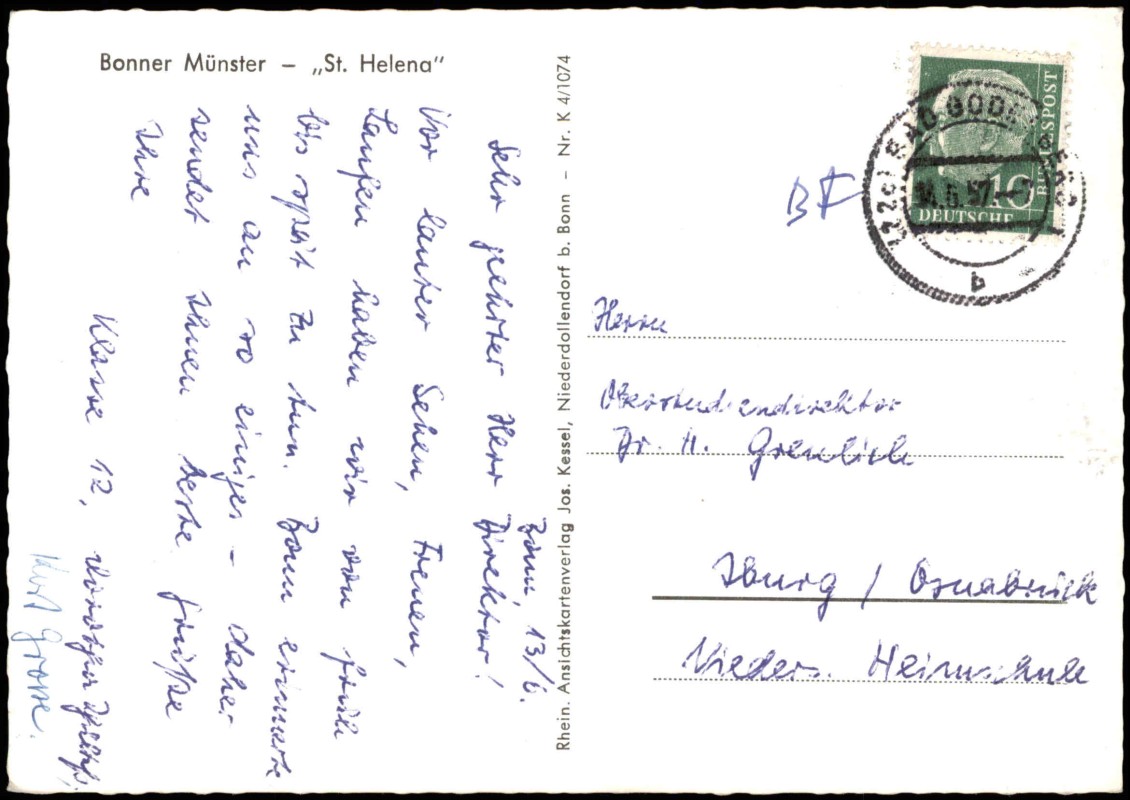 Bonner Münster – „St. Helena"
Bonn, 13/6.
Sehr geehrter Herr Direktor!
Vor lauter Sehen, Freuen,
Laufen haben wir von früh
bis spät zu tun. Bonn erinnerte
uns an so einiges – daher
sendet Ihnen beste Grüße
Ihre
Klasse 12,
Kurt Grosse.
Rhein. Ansichtskartenverlag Jos. Kessel, Niederdollendorf b. Bonn – Nr. K 4/1074
BF
BUNDESPOST
10
DEUTSCHE
(22c) BAD GODESBERG
14.6.57
b
Herrn
Oberstudiendirektor
Dr. H. Greulich
Iburg / Osnabrück
Nieders. Heimschule